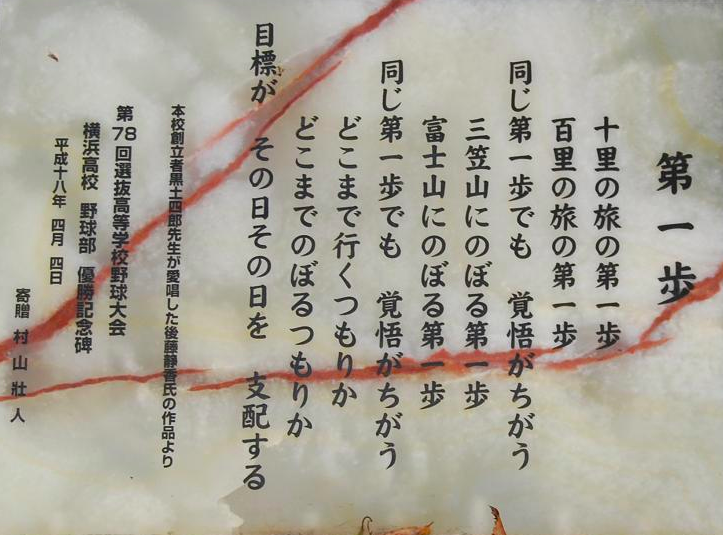 第一歩
十里の旅の第一歩
百里の旅の第一歩
同じ第一歩でも　覚悟がちがう
三笠山にのぼる第一歩
富士山にのぼる第一歩
同じ第一歩でも　覚悟がちがう
どこまで行くつもりか
どこまでのぼるつもりか
目標が　その日その日を　支配する
本校創立者黒土四郎先生が愛唱した後藤静香氏の作品より
第78回選抜高等学校野球大会
横浜高校　野球部　優勝記念碑
平成十八年　四月　四日
寄贈　村山壯人